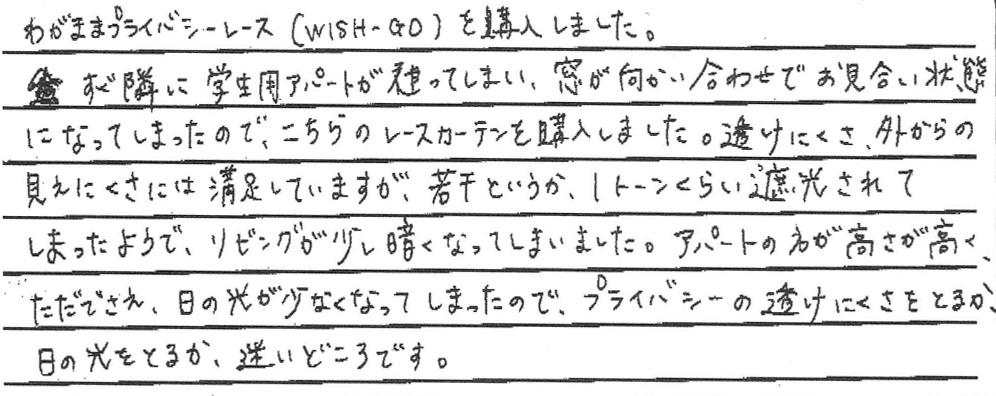 わがままプライバシーレース(WISH-GO)を購入しました。
すぐ隣に学生用アパートが建ってしまい、窓が向かい合わせでお見合い状態
になってしまったので、こちらのレースカーテンを購入しました。透けにくさ、外からの
見えにくさには満足していますが、若干というか、1トーンくらい遮光されて
しまったようで、リビングが少し暗くなってしまいました。アパートの方が高さが高く、
ただでさえ、日の光が少なくなってしまったので、プライバシーの透けにくさをとるか、
日の光をとるか、迷いどころです。